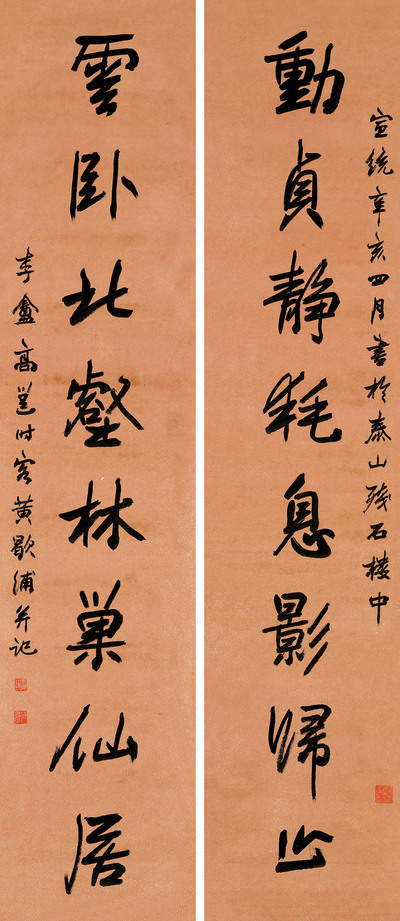 宣統辛亥四月書於泰山殘石樓中
動貞靜耗息影歸山
雲卧北壑林巢仙居
李盦高邕时客黄歇浦并记